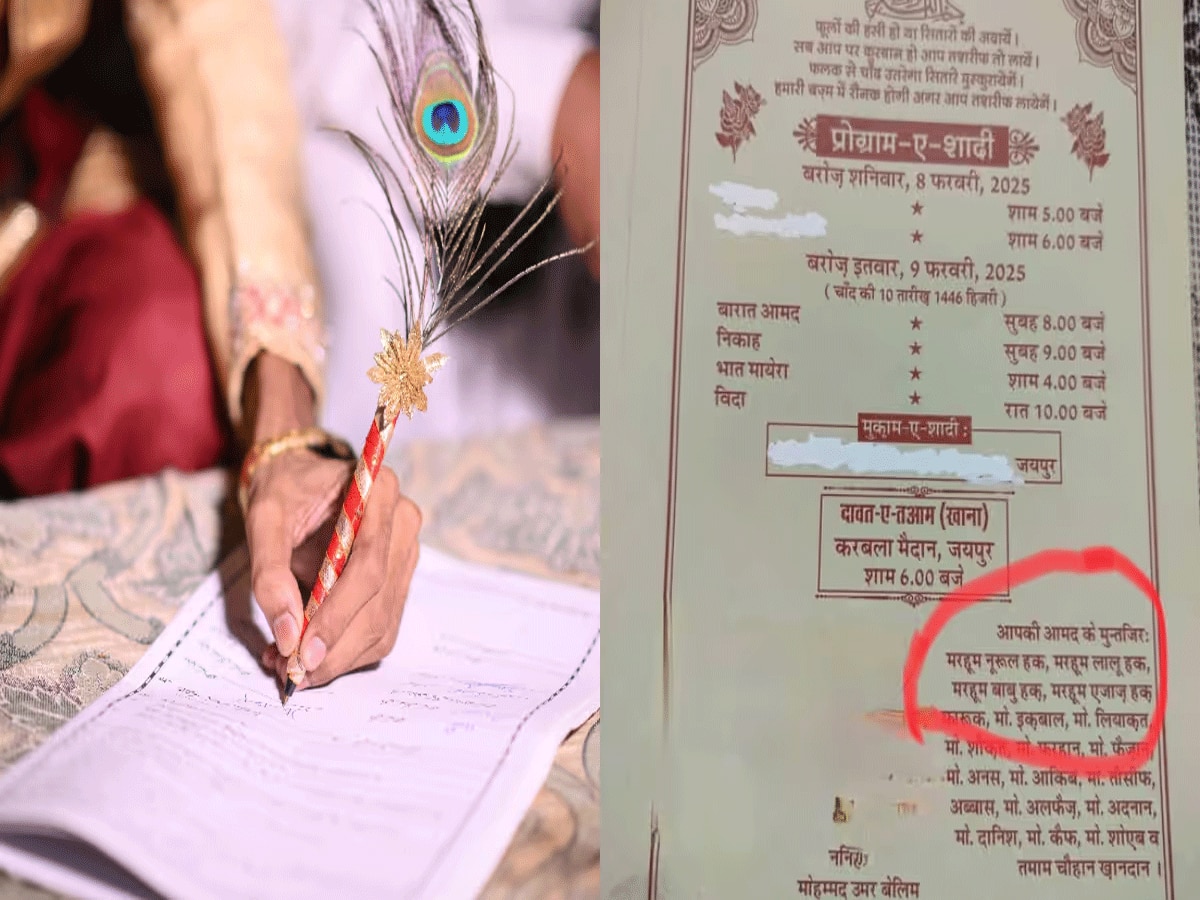 फूलों की हंसी हो या सितारों की अदायें।
सब आप पर कुरबान हो आप तशरीफ तो लायें।
फलक से चाँद उतरेगा सितारे मुस्कुरायेगें।
हमारी बज़्म में रौनक होगी अगर आप तशरीफ लायेगें।
प्रोग्राम-ए-शादी
बरोज़ शनिवार, 8 फरवरी, 2025
★ शाम 5.00 बजे
★ शाम 6.00 बजे
बरोज़ इतवार, 9 फरवरी, 2025
( चाँद की 10 तारीख़ 1446 हिजरी )
बारात आमद ★ सुबह 8.00 बजे
निकाह ★ सुबह 9.00 बजे
भात मायेरा ★ शाम 4.00 बजे
विदा ★ रात 10.00 बजे
मुक़ाम-ए-शादी :
जयपुर
दावत-ए-तआम (खाना)
करबला मैदान, जयपुर
शाम 6.00 बजे
आपकी आमद के मुन्तजिर:
मरहूम नूरूल हक, मरहूम लालू हक,
मरहूम बाबु हक़, मरहूम एजाज़ हक़
फारूक, मो. इक़बाल, मो. लियाक़त,
मो. शौकत, मो. फरहान, मो. फैजान,
मो. अनस, मो. आकिब, मो. तौसीफ,
अब्बास, मो. अलफैज़, मो. अदनान,
मो. दानिश, मो. कैफ, मो. शोएब व
तमाम चौहान ख़ानदान ।
मोहम्मद उमर बेलिम